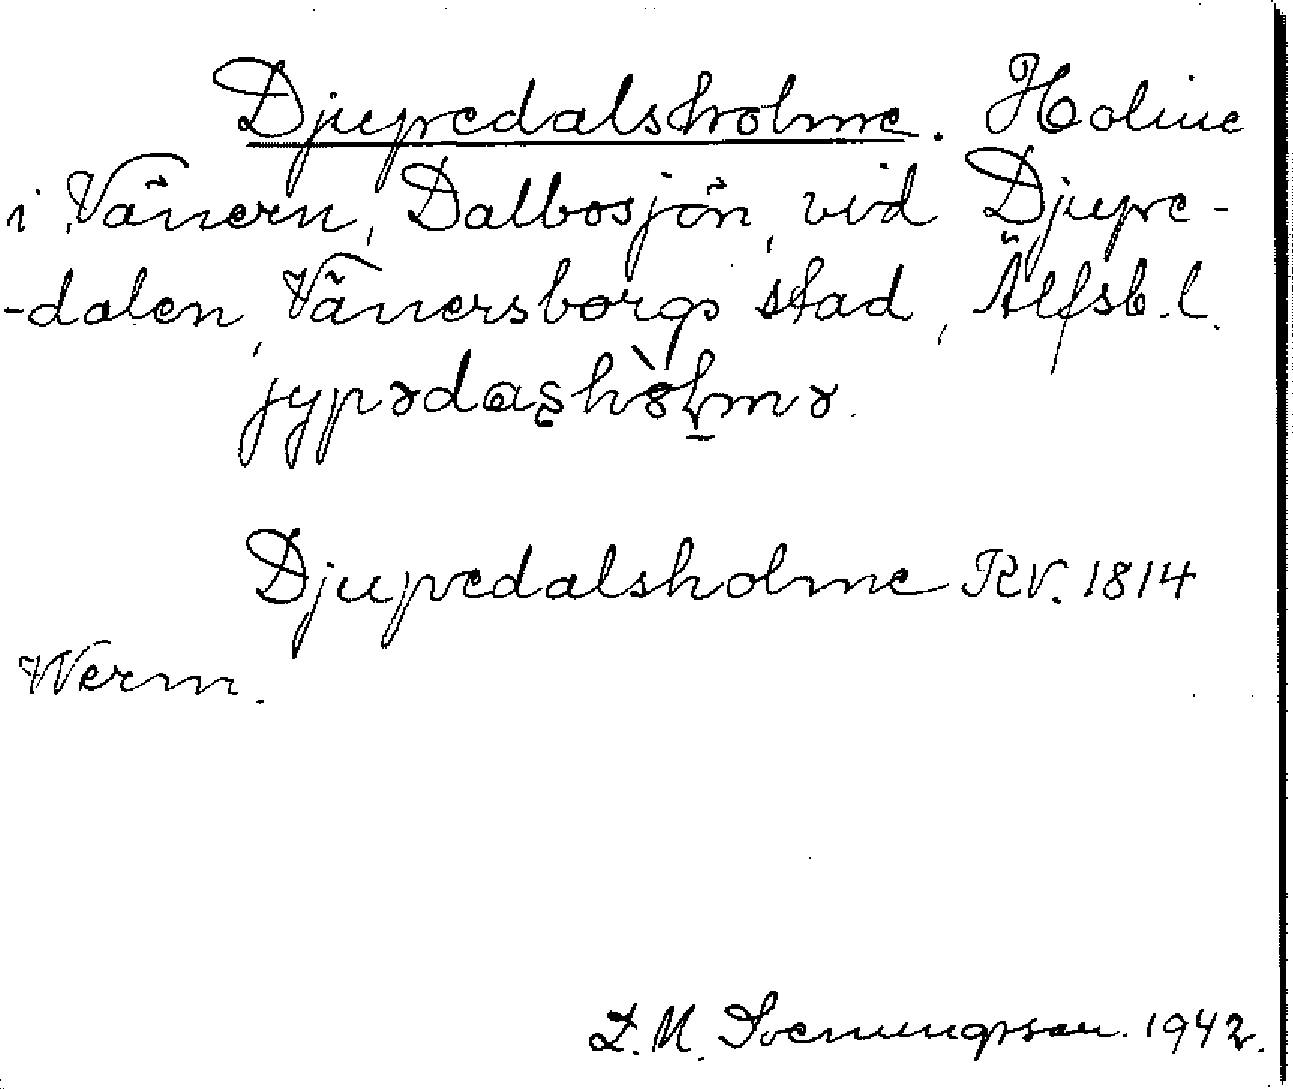 Djupedalsholme. Holme
i Vänern, Dalbosjön, vid Djupe-
-dalen, Vänersborgs stad, Älfsb. l.
jypədaʂhòl̥mə.
Djupedalsholme RV. 1814
Werm.
L. M. Svenungsson. 1942.